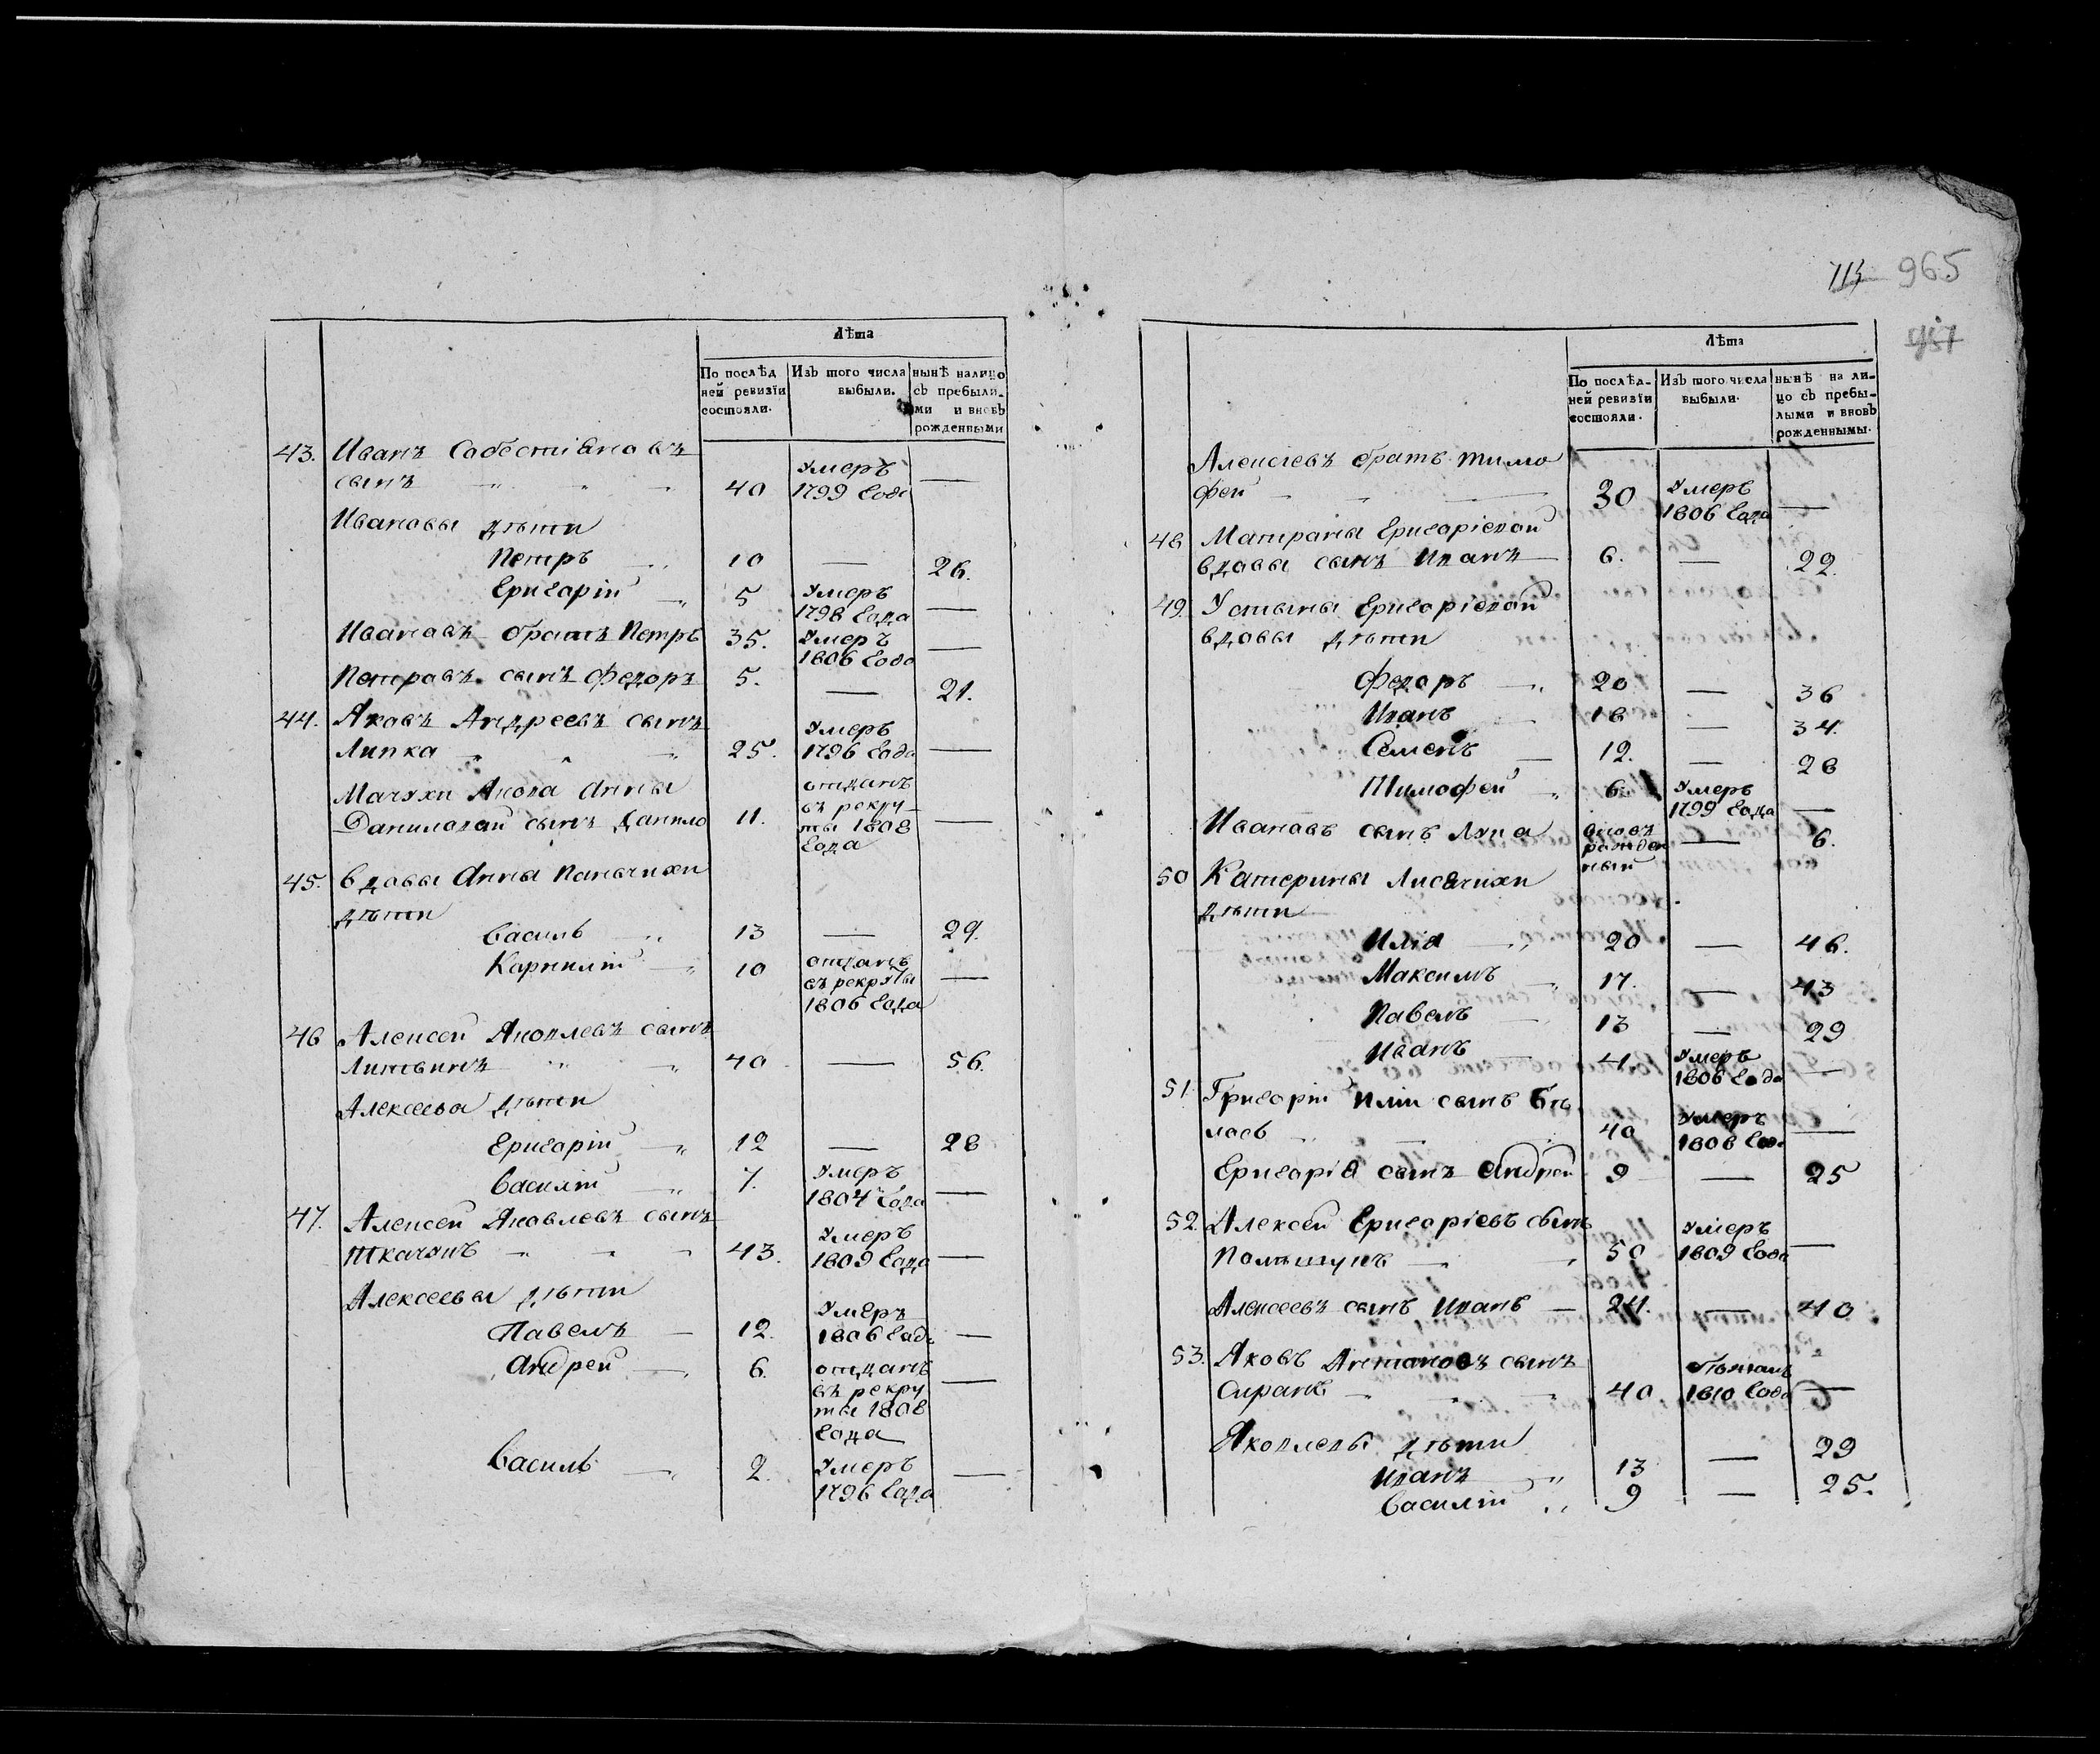 Лѣта
По послѣд
ней ревизїи
состояли.
Изъ того числа
выбыли.
нынѣ налицо
съ пребыли-
ми и вновь
рожденными
43. Иванъ Собестіановъ
сынъ 40 Умеръ 1799 года —
Ивановы дѣти
Петръ 10 — 26.
Григорій 5 Умеръ 1798 года —
Ивановъ братъ Петръ 35. Умеръ 1806 года —
Петровъ сынъ Федоръ 5. — 21.
44. Яковъ Андреевъ сынъ
Липка 25. Умеръ 1796 года —
Мачухи Якова Анны
Даниловой сынъ Данило 11. отданъ
въ рекру
ты 1808
года —
45. Вдовы Анны
дѣти
Василь 13 — 29.
Карнилій 10 отданъ
въ рекруты
1806 года —
46 Алексей Яковлевъ сынъ
Литвинъ 40 — 56.
Алексеева дѣти
Григорій 12 — 28
Василій 7. Умеръ 1804 года —
47. Алексей Яковлевъ сынъ
Ткачукъ 43. Умеръ 1809 года —
Алексеевы дѣти
Павелъ 12. Умеръ 1806 года —
Андрей 6. отданъ
въ рекру
ты 1808
года —
Василь 2. Умеръ 1796 года —
713 965
957
Лѣта
По послѣд-
ней ревизїи
состояли.
Изъ того числа
выбыли.
нынѣ на ли-
цо съ пребы-
лыми и вновь
рожденнымы.
Алексіевъ братъ Тимо
фей 30 Умеръ 1806 года —
48 Матроны Григоріевой
вдовы сынъ Иванъ 6. — 22.
49. Устыны Григоріевой
вдовы дѣти
Федоръ 20 — 36
Иванъ 18 — 34.
Семенъ 12. — 28
Тимофей 6. Умеръ 1799 года —
Ивановъ сынъ Лука вновь
рожден
ный — 6.
50 Катерины Лисячихи
дѣти
Илія 20 — 46.
Максимъ 17. — 43
Павелъ 13 — 29
Иванъ 4. Умеръ 1806 года —
51 Григорій Иліи сынъ Бѣ
лось 40 Умеръ 1808 года —
Григорія сынъ Андрей 9 — 25
52. Алексей Григоріевъ сынъ
Полѣщукъ 50 Умеръ 1809 года —
Алексеевъ сынъ Иванъ 24. — 40
53. Яковъ Антоновъ сынъ
40 1810 года —
Яковлевы дѣти
Иванъ 13 — 29
Василій 9 — 25.